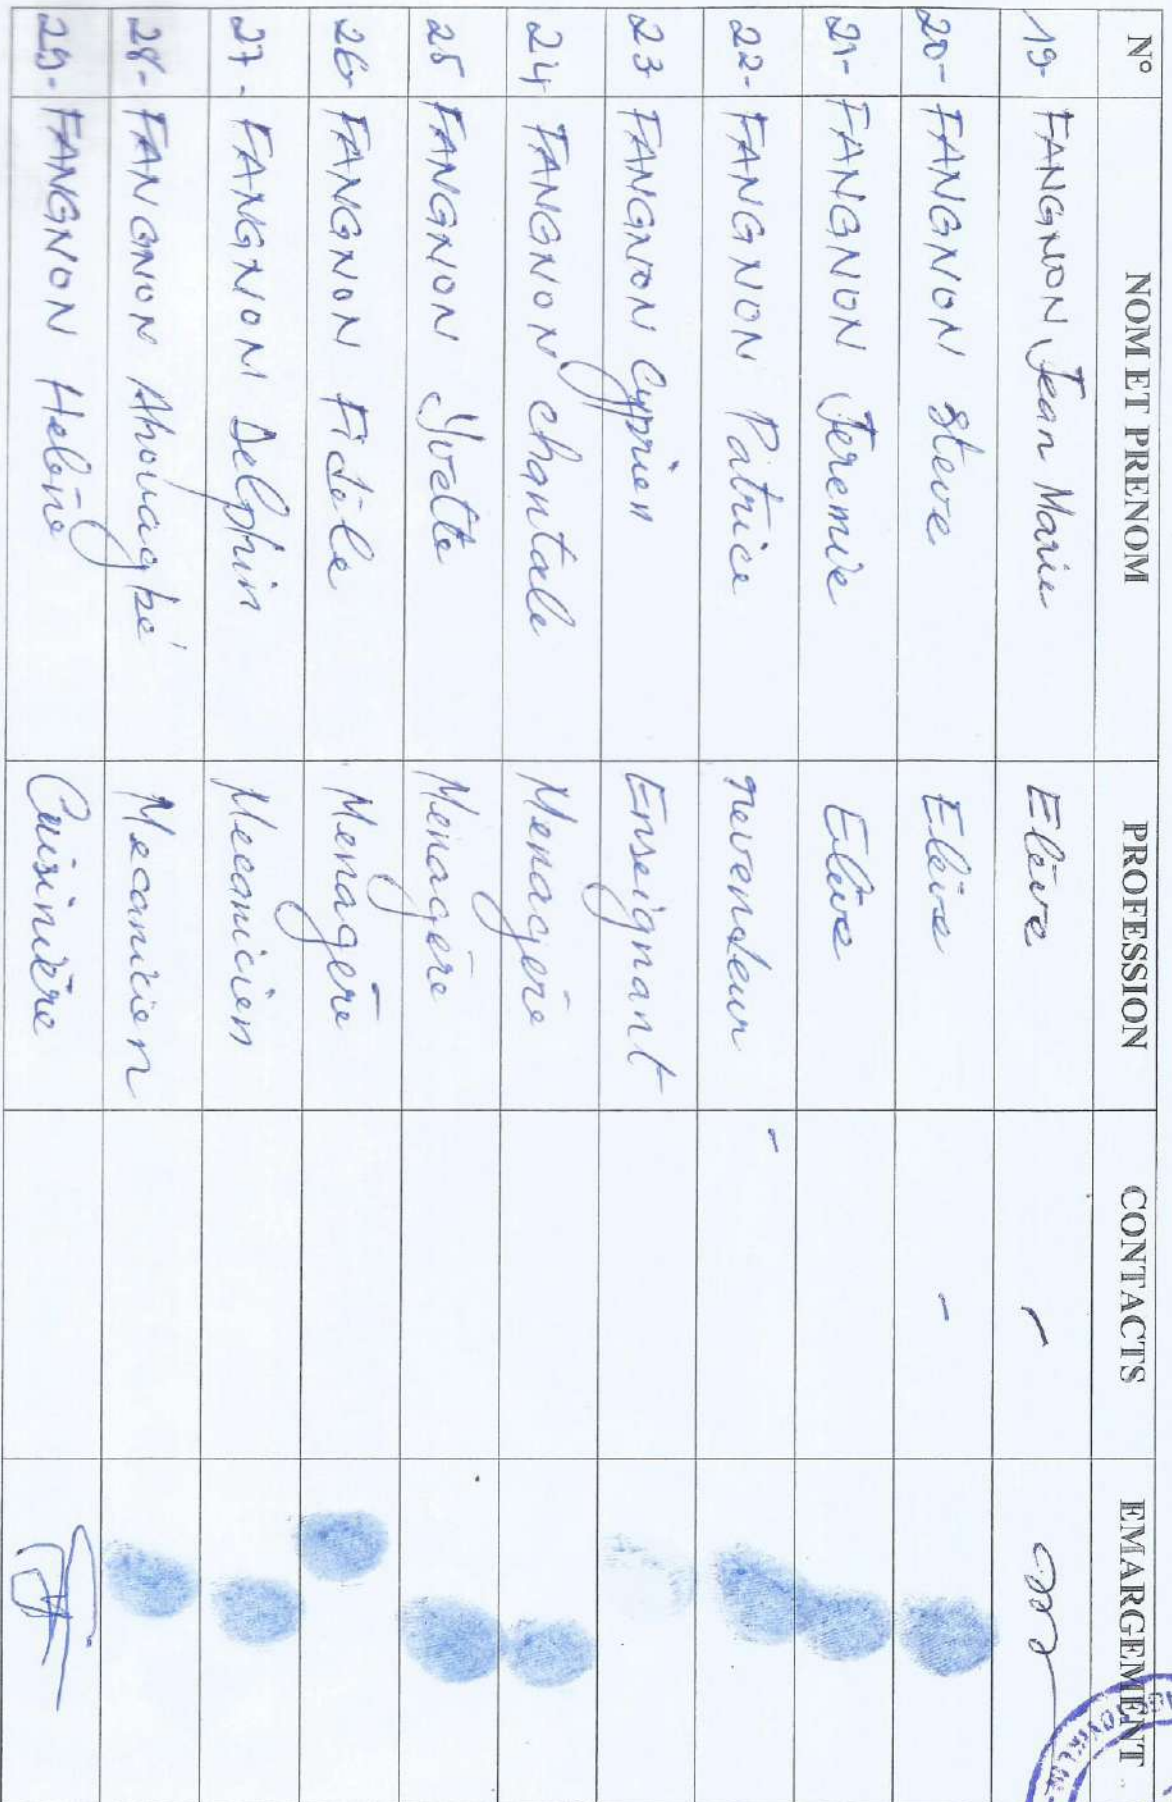 N° NOM ET PRENOM PROFESSION CONTACTS EMARGEMENT
19- FANGNON Jean Marie Elève -
20- FANGNON Steve Elève -
21- FANGNON Jeremie Elève
22- FANGNON Patrice revendeur -
23 FANGNON Cyprien Enseignant
24 FANGNON Chantale Menagère
25 FANGNON Yvette Menagère
26- FANGNON Fidèle Menagère
27- FANGNON Delphin Mecanicien
28- FANGNON Ahouagbé Mecanicien
29- FANGNON Helène Cuisinière